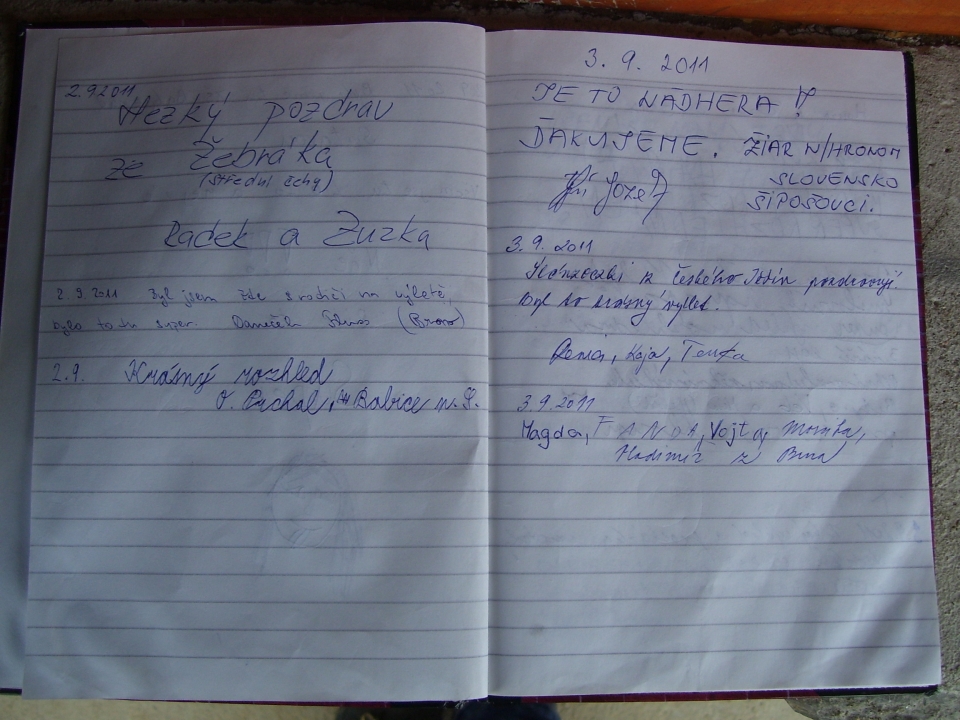 2.9.2011
Hezký pozdrav
ze Žebráka
(střední čechy)
Radek a Zuzka
2.9.2011 Byl jsem zde s rodiči na výletě,
bylo to tu super. Daneček (Brno)
2.9. Krásný rozhled
Babice n. S.
3. 9. 2011
JE TO NÁDHERA !
ĎAKUJEME. ŽIAR N/HRONOM
SLOVENSKO
Jozef ŠIPOŠOVCI.
3.9.2011
z českého pozdravují.
byl to krásný výlet.
Kája, Terka
3.9.2011
Magda, FANDA, Vojta, Monika,
Vladimír z Brna